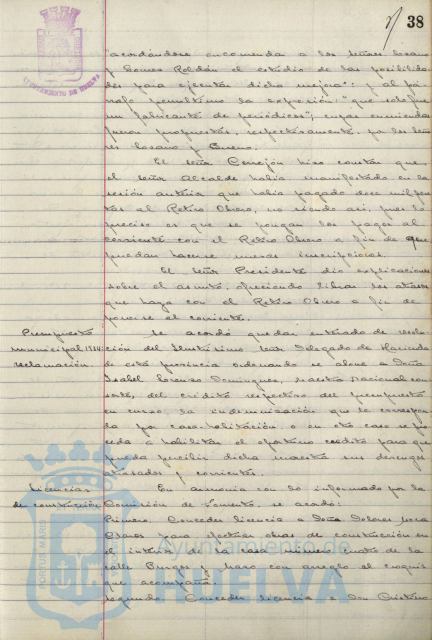 38
AYUNTAMIENTO DE HUELVA
"acordándose encomendar a los señores Lozano
y Gomez Roldán el estudio de las posibilida-
des para ejecutar dicha mejora"; y al pá-
rrafo penultimo la expresión: "que solo fue
un fabricante de periódicos"; cuyas enmiendas
fueron propuestas, respectivamente, por los seño-
res Lozano y
El señor Cerrejón hizo constar que
el señor Alcalde había manifestado en la
sesión anterior que había pagado doce mil pese-
tas al Retiro Obrero, no siendo así, pues lo
preciso es que se pongan los pagos al
corriente con el Retiro Obrero a fin de que
puedan hacerse nuevas inscripciones.
El señor Presidente dió explicaciones
sobre el asunto, ofreciendo librar los atrasos
que haya con el Retiro Obrero a fin de
ponerse al corriente.
Presupuesto
municipal
reclamación
Se acordó quedar enterado de reclama-
ción del Ilustrísimo señor Delegado de Hacienda
de esta provincia ordenando se abone a Doña
Isabel Lorenzo Dominguez, maestra nacional con-
sorte, del crédito respectivo del presupuesto
en curso, la indemnización que le correspon-
da por casa-habitación, o en otro caso se pro-
ceda a habilitar el oportuno crédito para que
pueda percibir dicha maestra sus devengos
atrasados y corrientes.
Licencias
de construcción
En armonía con lo informado por la
Comisión de Fomento, se acordó:
Primero. Conceder licencia a Doña Dolores
para efectuar obras de construcción en
el interior de la casa número cuatro de la
calle Burgos y Mazo con arreglo al croquis
que acompaña.
Segundo. Conceder licencia a Don Cristino
PORTUS MARIS
Ayuntamiento de
HUELVA